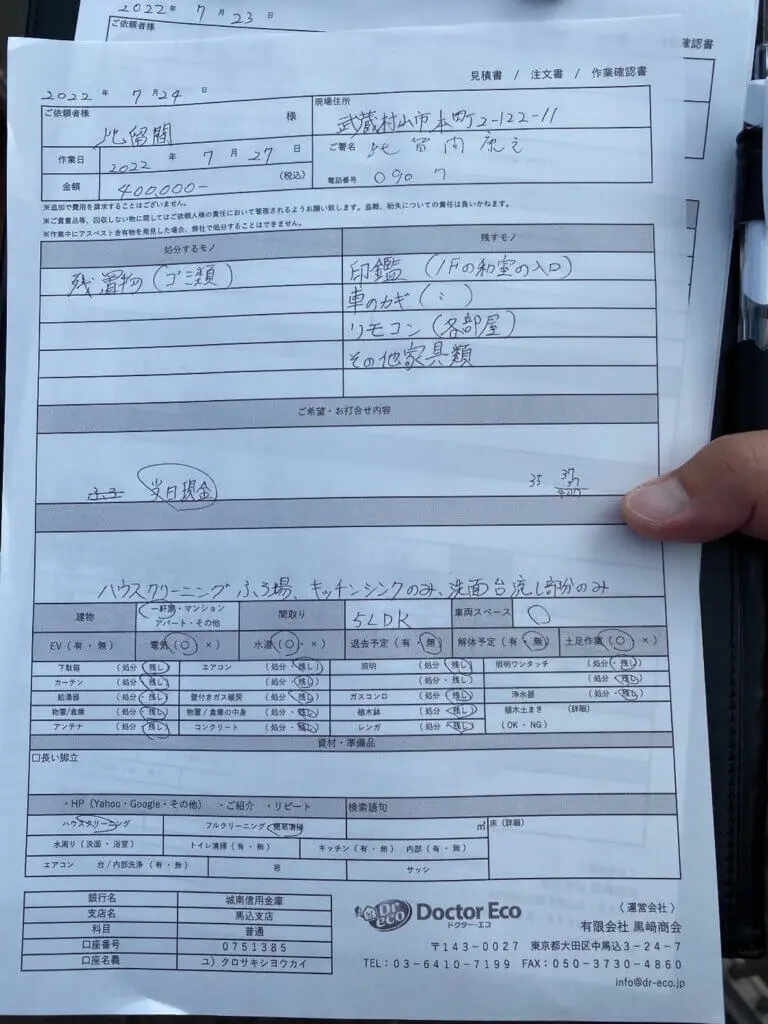 2022年 7月23日
ご依頼者様
確認書
見積書 / 注文書 / 作業確認書
2022 年 7 月 24 日
ご依頼者様 比留間 様
現場住所 武蔵村山市本町2-122-11
作業日 2022 年 7 月 27 日
ご署名 比留間
金額 400,000- (税込)
電話番号 090 7
※追加で費用を請求することはございません。
※ご貴重品等、回収しない物に関してはご依頼人様の責任において管理されるようお願い致します。盗難、紛失についての責任は負いかねます。
※作業中にアスベスト含有物を発見した場合、弊社で処分することはできません。
処分するモノ 残すモノ
残置物(ゴミ類) 印鑑(1Fの和室の入口)
車のカギ(〃)
リモコン(各部屋)
その他家具類
ご希望・お打合せ内容
当日現金 35 37
407
ハウスクリーニング ふろ場、キッチンシンクのみ、洗面台流し部分のみ
建物 一軒家・マンション アパート・その他 間取り 5LDK 車両スペース ○
EV(有・無) 電気(○ ×) 水道(○・×) 退去予定(有・無) 解体予定(有・無) 土足作業(○ ×)
下駄箱 (処分・残し) エアコン (処分・残し) 照明 (処分・残し) 照明ワンタッチ (処分・残し)
カーテン (処分・残し) (処分・残し) (処分・残し) (処分・残し)
給湯器 (処分・残し) 壁付きガス暖房 (処分・残し) ガスコンロ (処分・残し) 浄水器 (処分・残し)
物置/倉庫 (処分・残し) 物置/倉庫の中身 (処分・残し) 植木鉢 (処分・残し) 植木土まき (詳細)
アンテナ (処分・残し) コンクリート (処分・残し) レンガ (処分・残し) (OK・NG)
資材・準備品
□長い脚立
・HP(Yahoo・Google・その他) ・ご紹介 ・リピート 検索語句
ハウスクリーニング フルクリーニング・簡易清掃 ㎡ 床(詳細)
水周り(洗面・浴室) トイレ清掃(有・無) キッチン(有・無) 内部(有・無)
エアコン 台/内部洗浄(有・無) 窓 サッシ
銀行名 城南信用金庫
支店名 馬込支店
科目 普通
口座番号 0751385
口座名義 ユ)クロサキシヨウカイ
Dr. eco Doctor Eco
ドクター・エコ
〈運営会社〉
有限会社 黒﨑商会
〒143-0027 東京都大田区中馬込3-24-7
TEL:03-6410-7199 FAX:050-3730-4860
info@dr-eco.jp